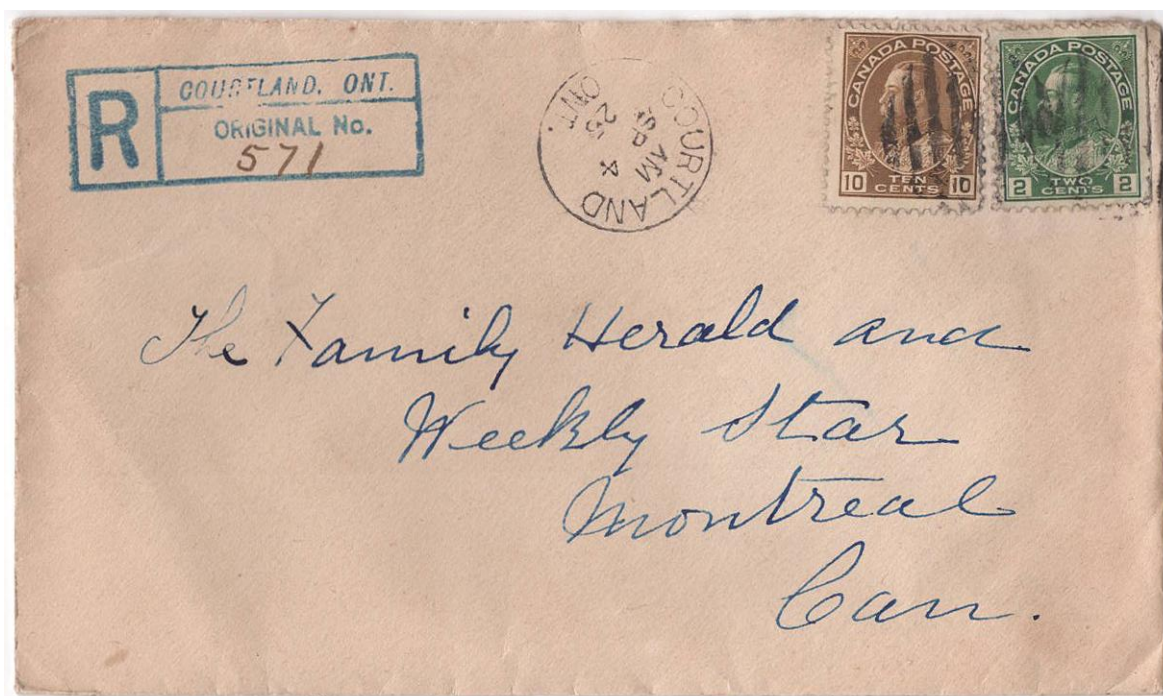 R
COURTLAND, ONT.
ORIGINAL No.
571
COURTLAND
AM
SP 4
25
ONT.
CANADA POSTAGE
10 TEN CENTS 10
CANADA POSTAGE
2 TWO CENTS 2
The Family Herald and
Weekly Star
Montreal
Can.